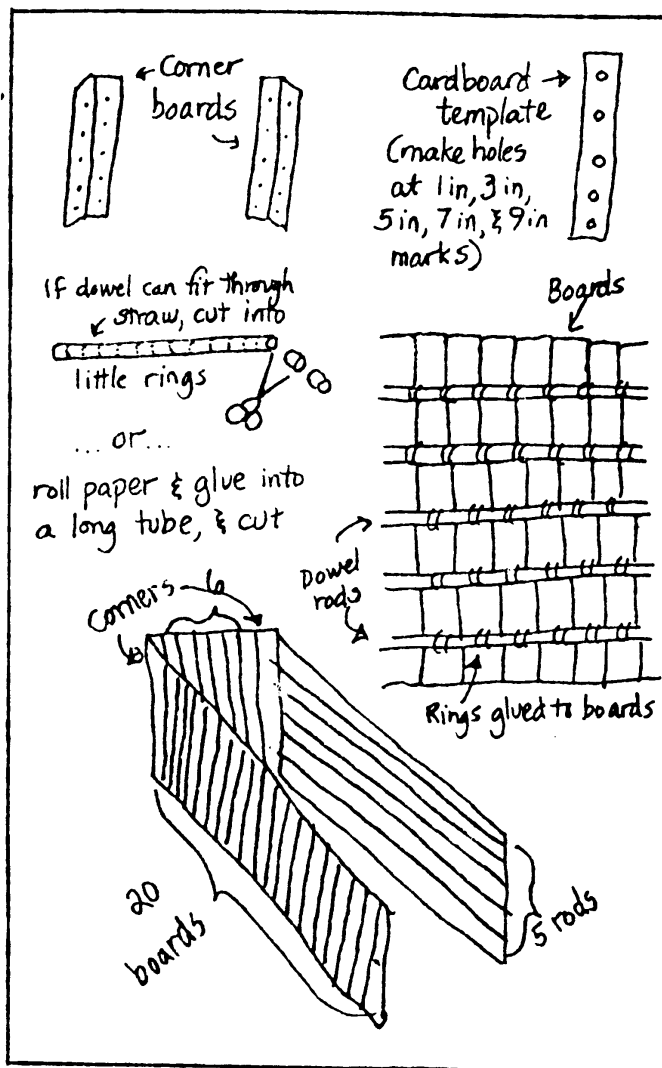 Corner
boards
Cardboard
template
(make holes
at 1 in, 3 in,
5 in, 7 in, & 9 in
marks)
If dowel can fit through
straw, cut into
little rings
... or...
roll paper & glue into
a long tube, & cut
Boards
Dowel
rods
Rings glued to boards
Corners
6
20
boards
5 rods